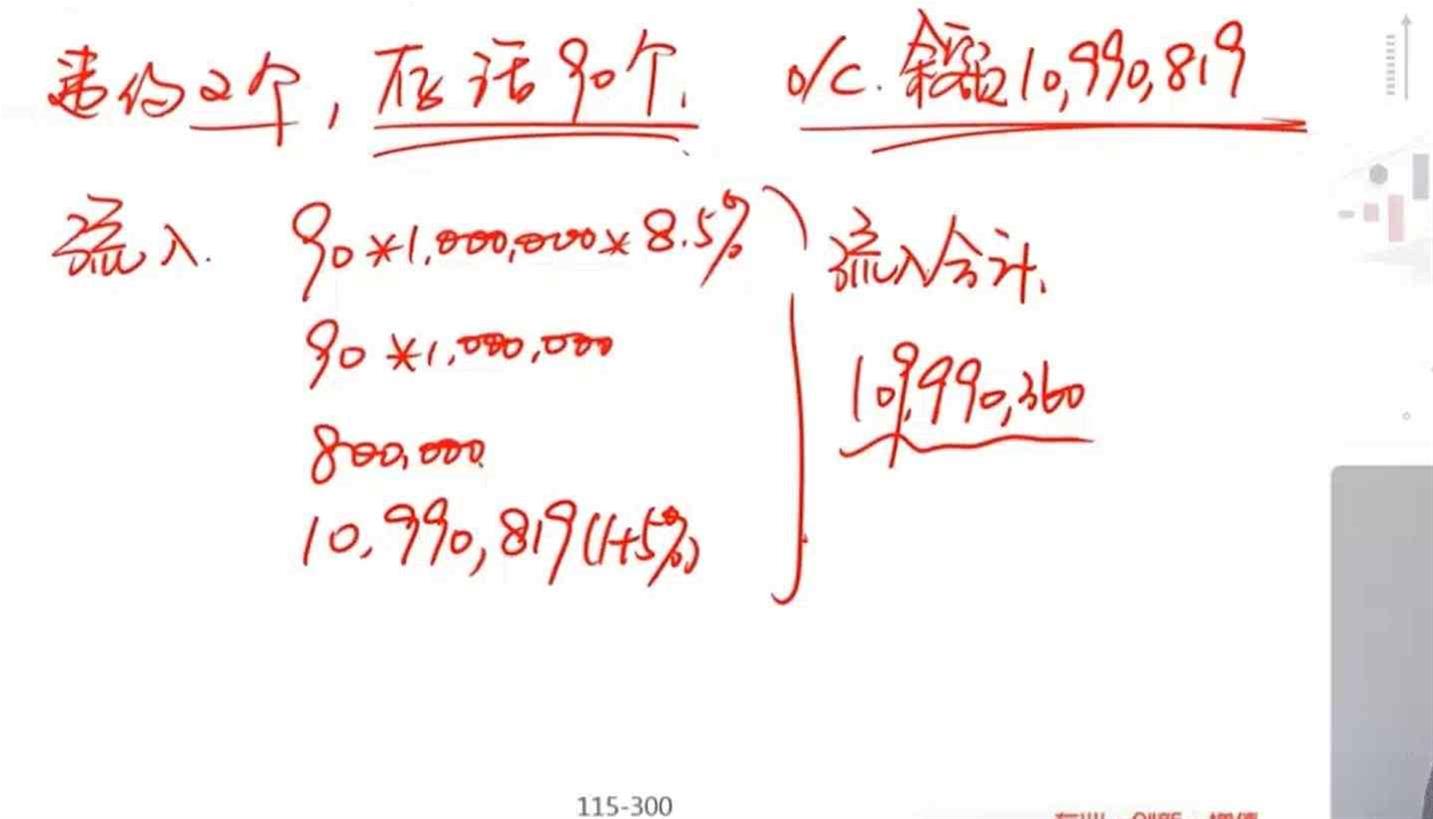 违约2个，存活90个. O/C.余额10,990,819
流入. 90*1,000,000*8.5%
流入合计.
90*1,000,000
109,990,360
800,000
10,990,819(1+5%)
115-300